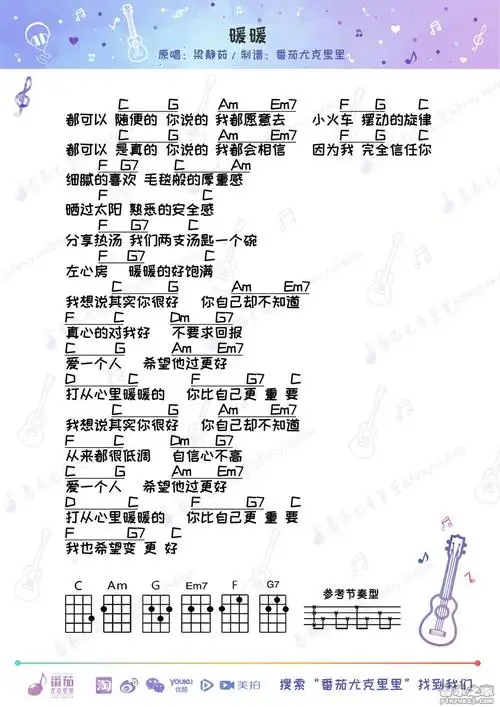 暖暖
原唱：梁静茹/制谱：番茄尤克里里
C G Am Em7 F G C
都可以 随便的 你说的 我都愿意去 小火车 摆动的旋律
C G Am Em7 F G C
都可以 是真的 你说的 我都会相信 因为我 完全信任你
F G7 C Am
细腻的喜欢 毛毯般的厚重感
F C
晒过太阳 熟悉的安全感
F G7 C
分享热汤 我们两支汤匙一个碗
F G7 C
左心房 暖暖的好饱满
C G Am Em7
我想说其实你很好 你自己却不知道
F C Dm G7
真心的对我好 不要求回报
C G Am Em7
爱一个人 希望他过更好
D C F G7 C
打从心里暖暖的 你比自己更 重 要
C G Am Em7
我想说其实你很好 你自己却不知道
F C Dm G7
从来都很低调 自信心不高
C G Am Em7
爱一个人 希望他过更好
D C F G7 C
打从心里暖暖的 你比自己更 重 要
F G7 C
我也希望变 更 好
C Am G Em7 F G7 参考节奏型
番茄 尤克里里 淘 YOUKU 优酷 美拍 搜索“番茄尤克里里”找到我们